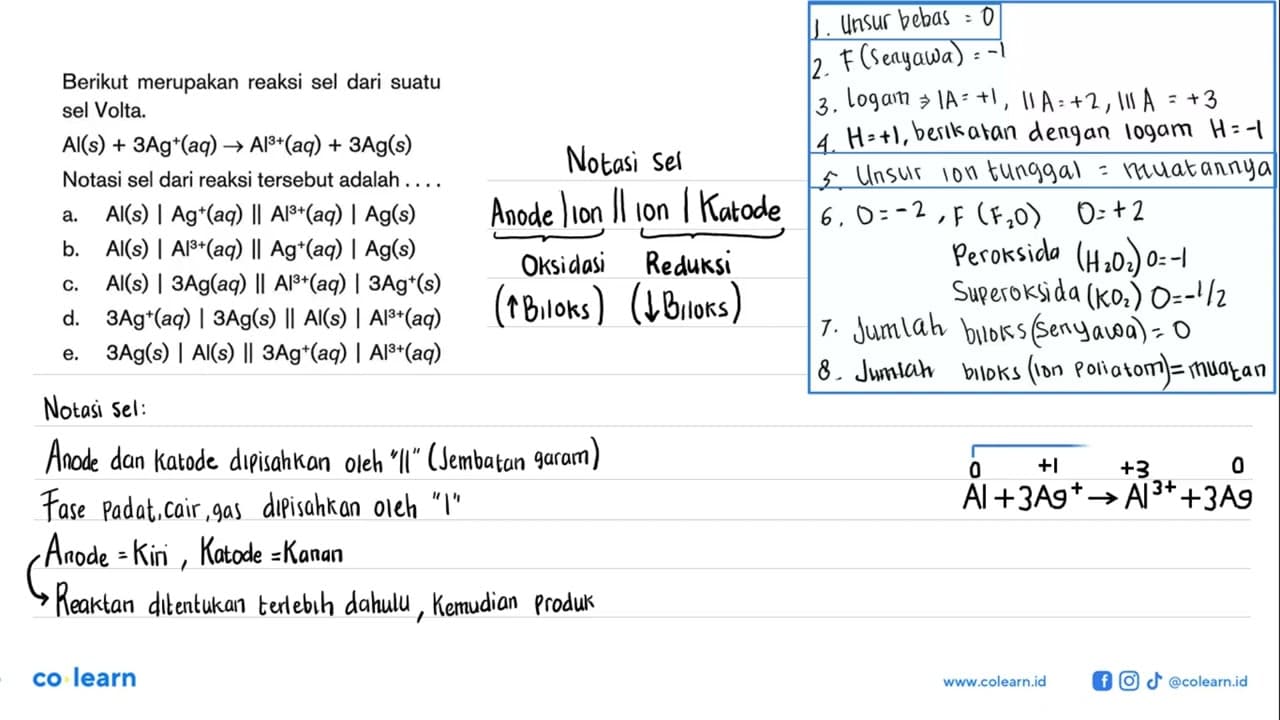 Berikut merupakan reaksi sel dari suatu
sel Volta.
Al(s) + 3Ag⁺(aq) → Al³⁺(aq) + 3Ag(s)
Notasi sel dari reaksi tersebut adalah . . . .
a. Al(s) | Ag⁺(aq) || Al³⁺(aq) | Ag(s)
b. Al(s) | Al³⁺(aq) || Ag⁺(aq) | Ag(s)
c. Al(s) | 3Ag(aq) || Al³⁺(aq) | 3Ag⁺(s)
d. 3Ag⁺(aq) | 3Ag(s) || Al(s) | Al³⁺(aq)
e. 3Ag(s) | Al(s) || 3Ag⁺(aq) | Al³⁺(aq)
Notasi sel
Anode | ion || ion | Katode
Oksidasi Reduksi
(↑Biloks) (↓Biloks)
1. Unsur bebas = 0
2. F (Senyawa) = -1
3. Logam ⇒ IA = +1, IIA = +2, IIIA = +3
4. H = +1, berikatan dengan logam H = -1
5. Unsur ion tunggal = muatannya
6. O = -2, F (F₂O) O = +2
Peroksida (H₂O₂) O = -1
Superoksida (KO₂) O = -1/2
7. Jumlah biloks (Senyawa) = 0
8. Jumlah biloks (ion poliatom) = muatan
Notasi sel:
Anode dan Katode dipisahkan oleh "||" (Jembatan garam)
Fase padat, cair, gas dipisahkan oleh "|"
Anode = Kiri, Katode = Kanan
→ Reaktan ditentukan terlebih dahulu, Kemudian produk
0 +1 +3 0
Al + 3Ag⁺ → Al³⁺ + 3Ag
co learn
www.colearn.id @colearn.id